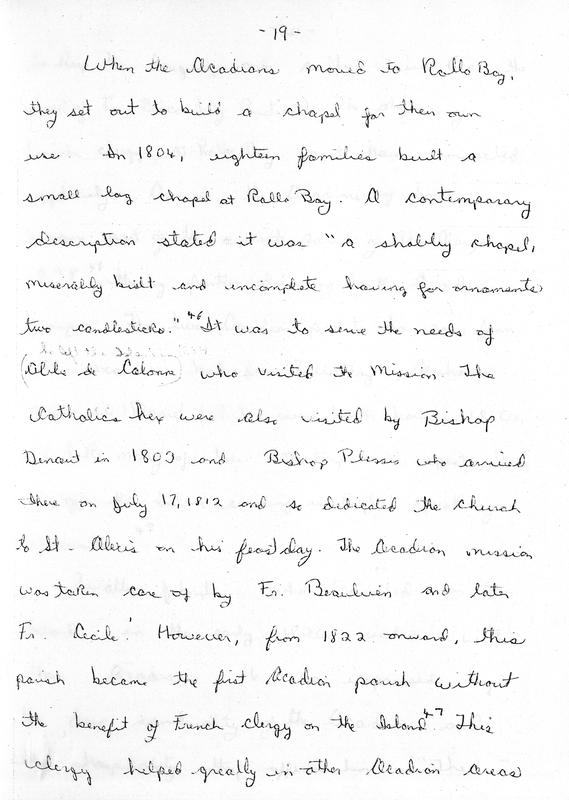 - 19 -
When the Acadians moved to Rollo Bay,
they set out to build a chapel for their own
use. In 1804, eighteen families built a
small log chapel at Rollo Bay. A contemporary
description stated it was "a shabby chapel,
miserably built and incomplete having for ornaments
two candlesticks."46 It was to serve the needs of
(Abbé de Calonne) who visited the Mission. The
Catholics here were also visited by Bishop
Denaut in 1803 and Bishop Plessis who arrived
there on July 17, 1812 and so dedicated the church
to St. Alexis on his feast day. The Acadian mission
was taken care of by Fr. Beaubien and later
Fr. Cecile. However, from 1822 onward, this
parish became the first Acadian parish without
the benefit of French clergy on the Island47 This
clergy helped greatly in other Acadian areas